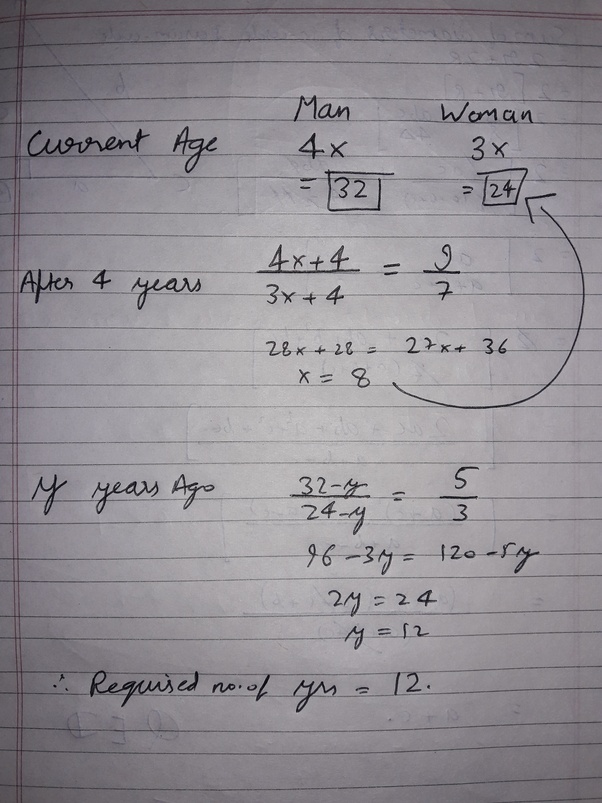 Man Woman
Current Age 4x 3x
= 32 = 24
After 4 years (4x+4)/(3x+4) = 9/7
28x + 28 = 27x + 36
x = 8
y years Ago (32-y)/(24-y) = 5/3
96 - 3y = 120 - 5y
2y = 24
y = 12
∴ Required no. of yrs = 12.